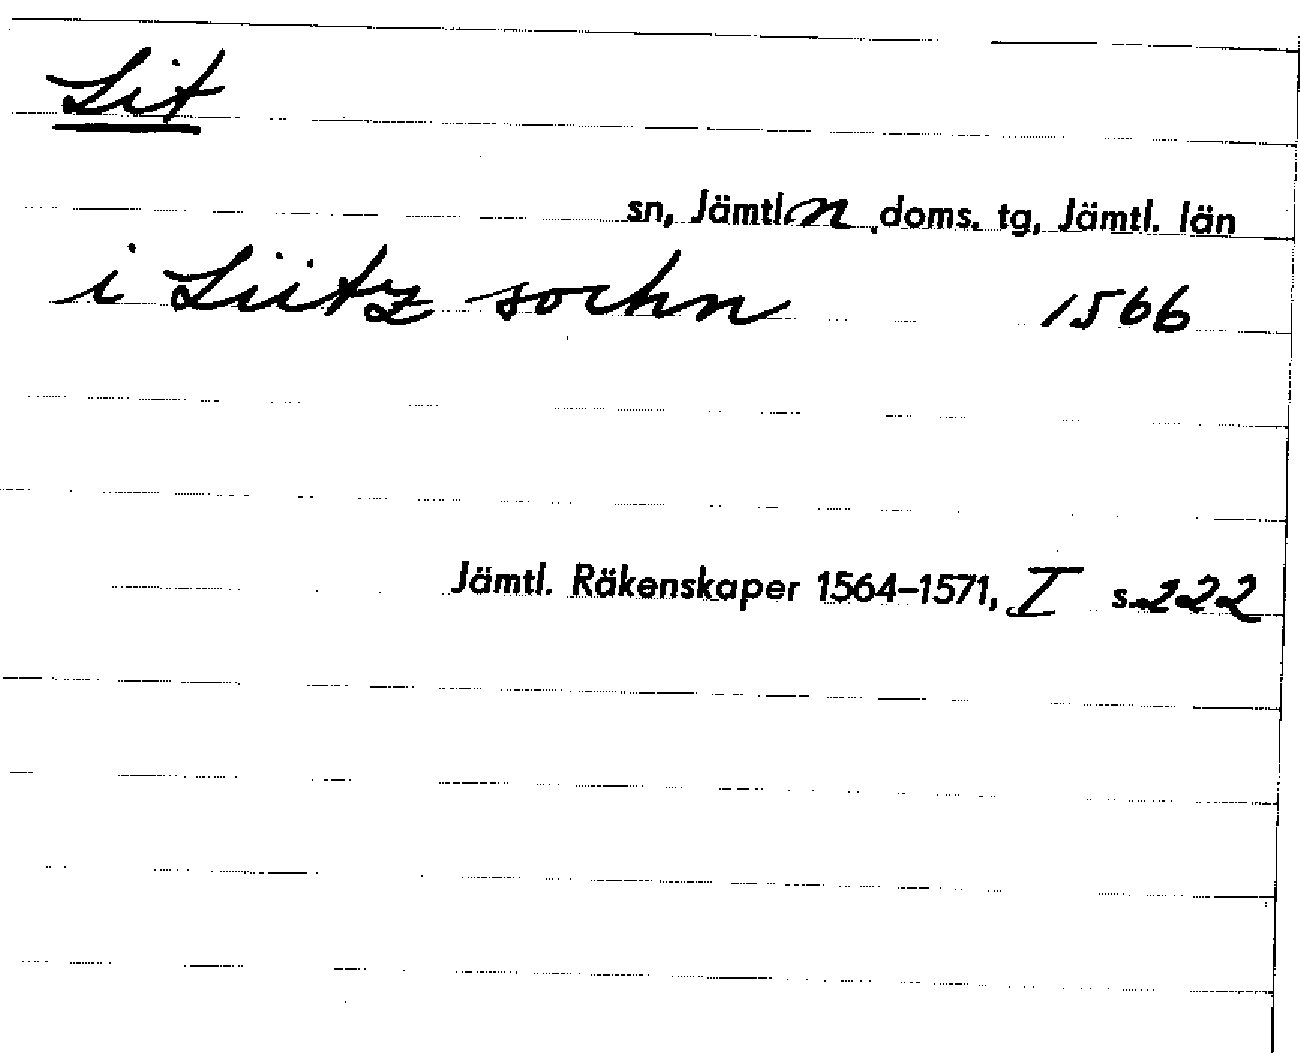 Lit
sn, Jämtl. n. doms. tg, Jämtl. län
i Liitz sochn 1566
Jämtl. Räkenskaper 1564–1571, I s. 222